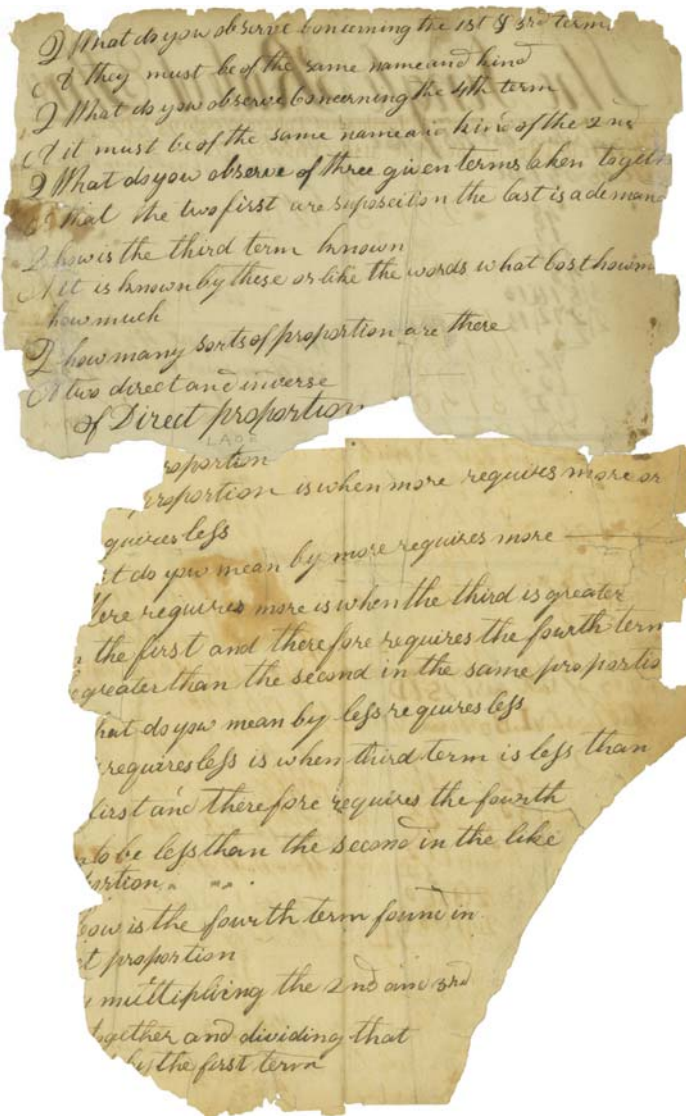 Q What do you observe concerning the 1st & 3rd term
A they must be of the same name and kind
Q What do you observe concerning the 4th term
A it must be of the same name and kind of the 2nd
Q What do you observe of three given terms taken togeth
A that the two first are suposcition the last is a deman
Q how is the third term known
A it is known by these or like the words what cost how m
how much
Q how many sorts of proportion are there
A two direct and inverse
of Direct proportion
roportion
proportion is when more requires more or
quires less
t do you mean by more requires more
ore requires more is when the third is greater
the first and therefore requires the fourth term
greater than the second in the same proportio
hat do you mean by less requires less
requires less is when third term is less than
first and therefore requires the fourth
to be less than the second in the like
ortion
how is the fourth term found in
t proportion
multipliing the 2nd and 3rd
together and dividing that
by the first term